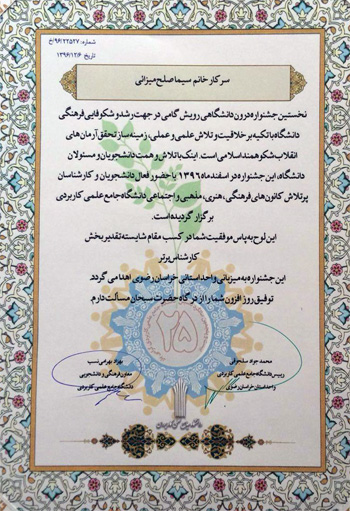 شماره: ۹۶/۲۲۵۲۷/خ
تاریخ: ۱۳۹۶/۱۲/۶
سرکار خانم سیما صلح میزانی
نخستین جشنواره درون دانشگاهی رویش گامی در جهت رشد و شکوفایی فرهنگی
دانشگاه با تکیه بر خلاقیت و تلاش علمی و عملی، زمینه ساز تحقق آرمان های
انقلاب شکوهمند اسلامی است. اینک با تلاش و همت دانشجویان و مسئولان
دانشگاه، این جشنواره در اسفند ماه ۱۳۹۶ با حضور فعال دانشجویان و کارشناسان
پرتلاش کانون های فرهنگی، هنری، مذهبی و اجتماعی دانشگاه جامع علمی کاربردی
برگزار گردیده است.
این لوح به پاس موفقیت شما در کسب مقام شایسته تقدیر بخش
کارشناس برتر
این جشنواره به میزبانی واحد استانی خراسان رضوی اهدا می گردد
توفیق روز افزون شما را از درگاه حضرت سبحان مسألت دارم.
محمد جواد سلجوقی
رییس دانشگاه جامع علمی کاربردی
واحد استان خراسان رضوی
بهزاد بهرامی نسب
معاون فرهنگی و دانشجویی
دانشگاه جامع علمی کاربردی
۲۵